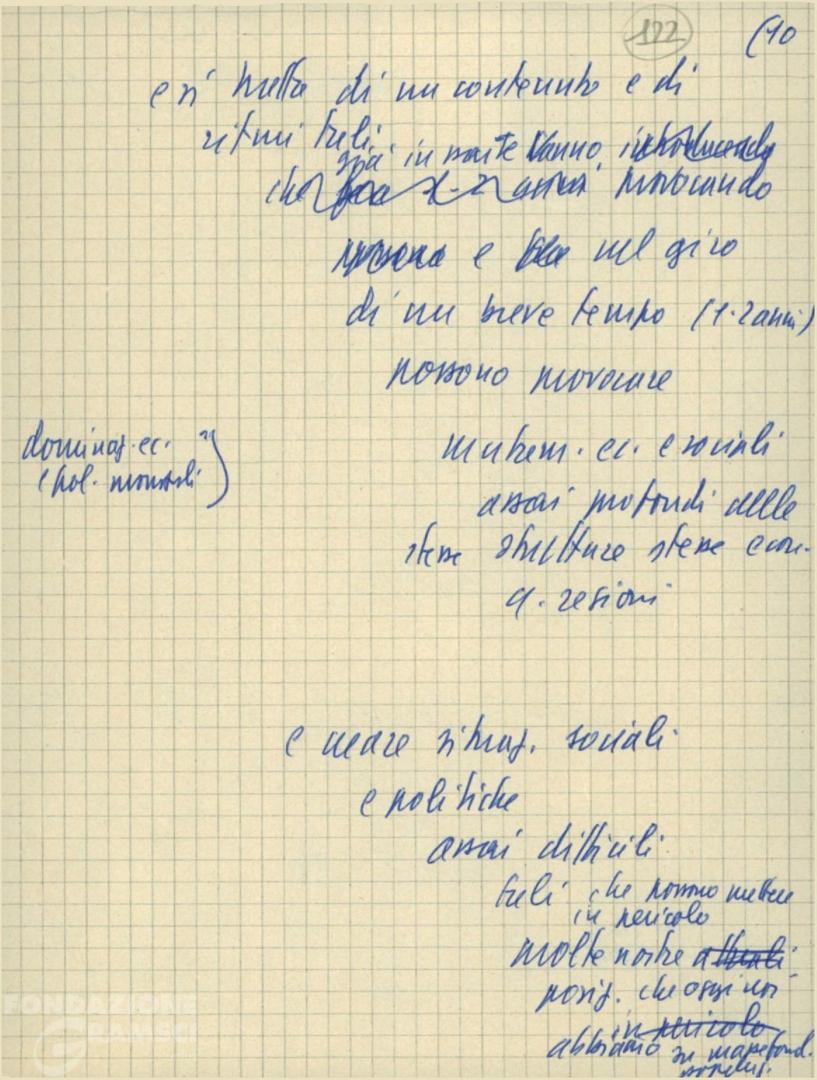 122
(10
e si tratta di un contenuto e di
ritmi tali
già in parte vanno introducendo
che 1-2 anni provocando
e nel giro
di un breve tempo (1-2 anni)
possono provocare
dominaz. ec.
e pol. monopoli
mutam. ec. e sociali
assai profondi delle
stesse strutture stesse econ.
q. regioni
e creare situaz. sociali
e politiche
assai difficili
tali che possono mettere
in pericolo
molte nostre attuali
posiz. che oggi noi
in pericolo
abbiamo
FONDAZIONE
GRAMSCI